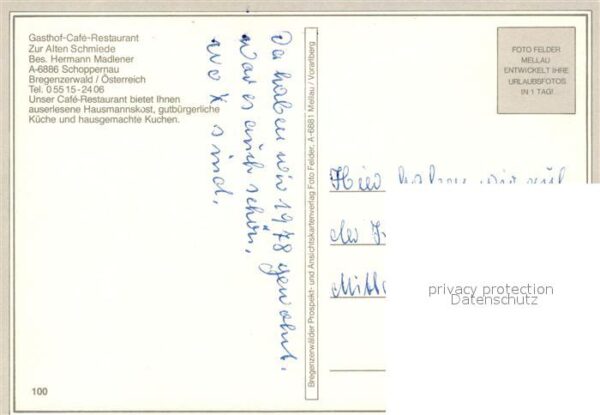 Gasthof-Café-Restaurant
Zur Alten Schmiede
Bes. Hermann Madlener
A-6886 Schoppernau
Bregenzerwald / Österreich
Tel. 0 55 15 - 24 06
Unser Café-Restaurant bietet Ihnen
auserlesene Hausmannskost, gutbürgerliche
Küche und hausgemachte Kuchen.
100
Da haben wir 1978 gewohnt.
war es auch schön,
wo X sind.
Bregenzerwälder Prospekt- und Ansichtskartenverlag Foto Felder, A-6881 Mellau / Vorarlberg
FOTO FELDER
MELLAU
ENTWICKELT IHRE
URLAUBSFOTOS
IN 1 TAG!
Hier haben wir auf
der
privacy protection
Datenschutz